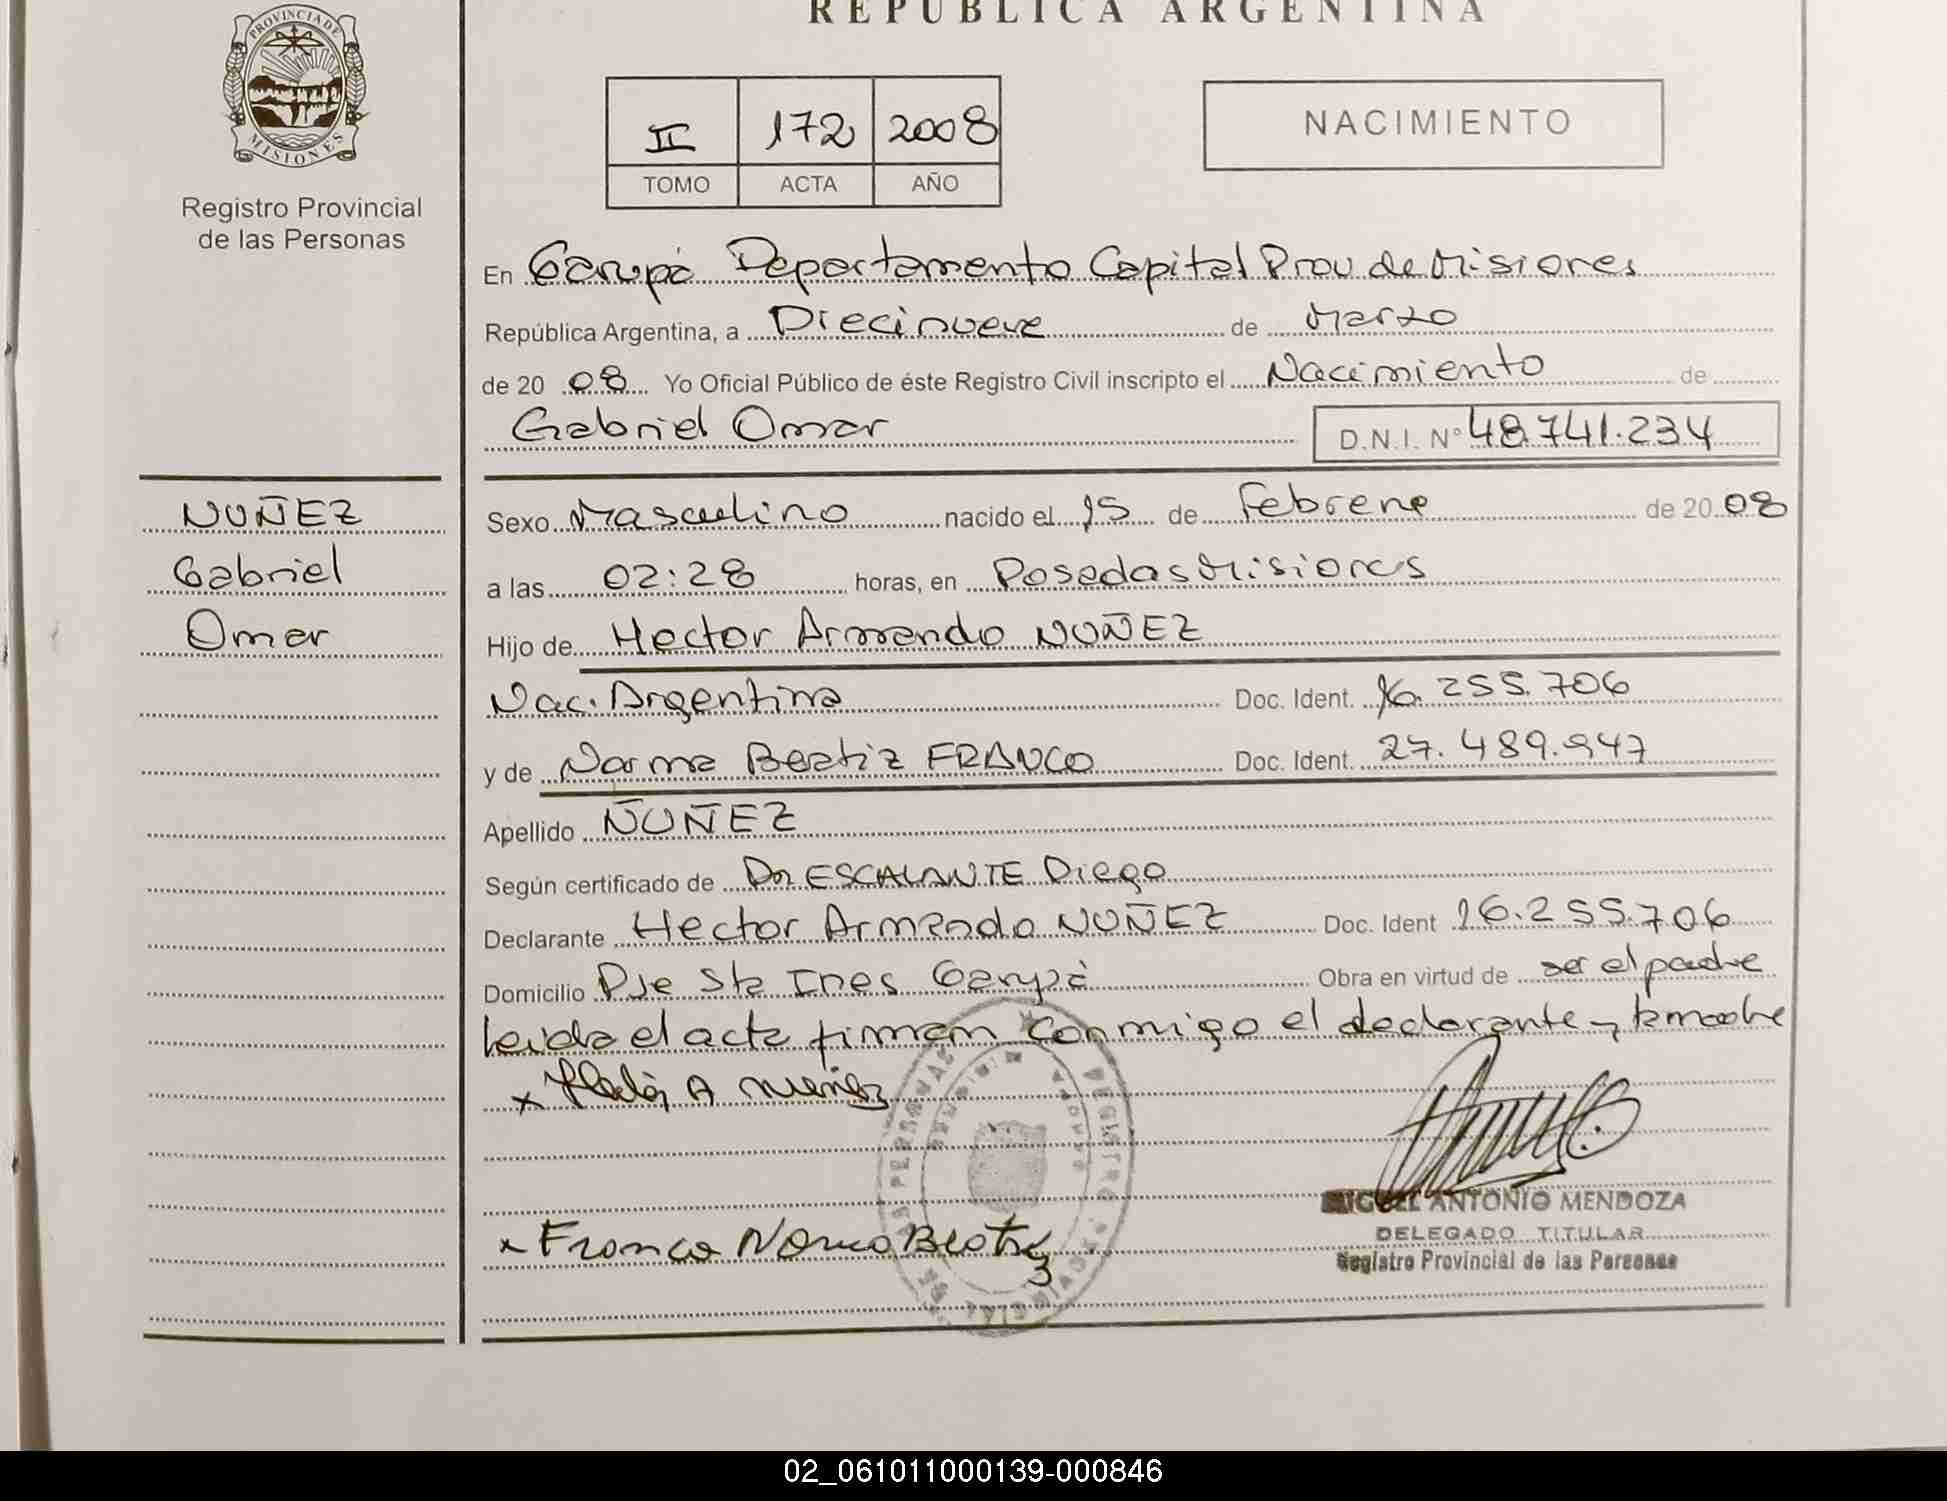 REPUBLICA ARGENTINA
PROVINCIA DE
MISIONES
Registro Provincial
de las Personas
II 172 2008
TOMO ACTA AÑO
NACIMIENTO
En Garupá Departamento Capital Prov de Misiones
República Argentina, a Diecinueve de Marzo
de 20 08 Yo Oficial Público de éste Registro Civil inscripto el Nacimiento de
Gabriel Omar D.N.I. N° 48.741.234
NUÑEZ
Gabriel
Omar
Sexo Masculino nacido el 15 de Febrero de 20 08
a las 02:28 horas, en Posadas Misiones
Hijo de Hector Armando NUÑEZ
Nac. Argentina Doc. Ident. 16.255.706
y de Norma Beatiz FRANCO Doc. Ident. 27.489.947
Apellido NUÑEZ
Según certificado de Dr ESCALANTE Diego
Declarante Hector Armando NUÑEZ Doc. Ident 16.255.706
Domicilio Pje Sta Ines Garupá Obra en virtud de ser el padre
leida el acta firman conmigo el declarante y la madre
x A Nuñez
x Franco Norma Beatriz
MIGUEL ANTONIO MENDOZA
DELEGADO TITULAR
Registro Provincial de las Personas
02_061011000139-000846